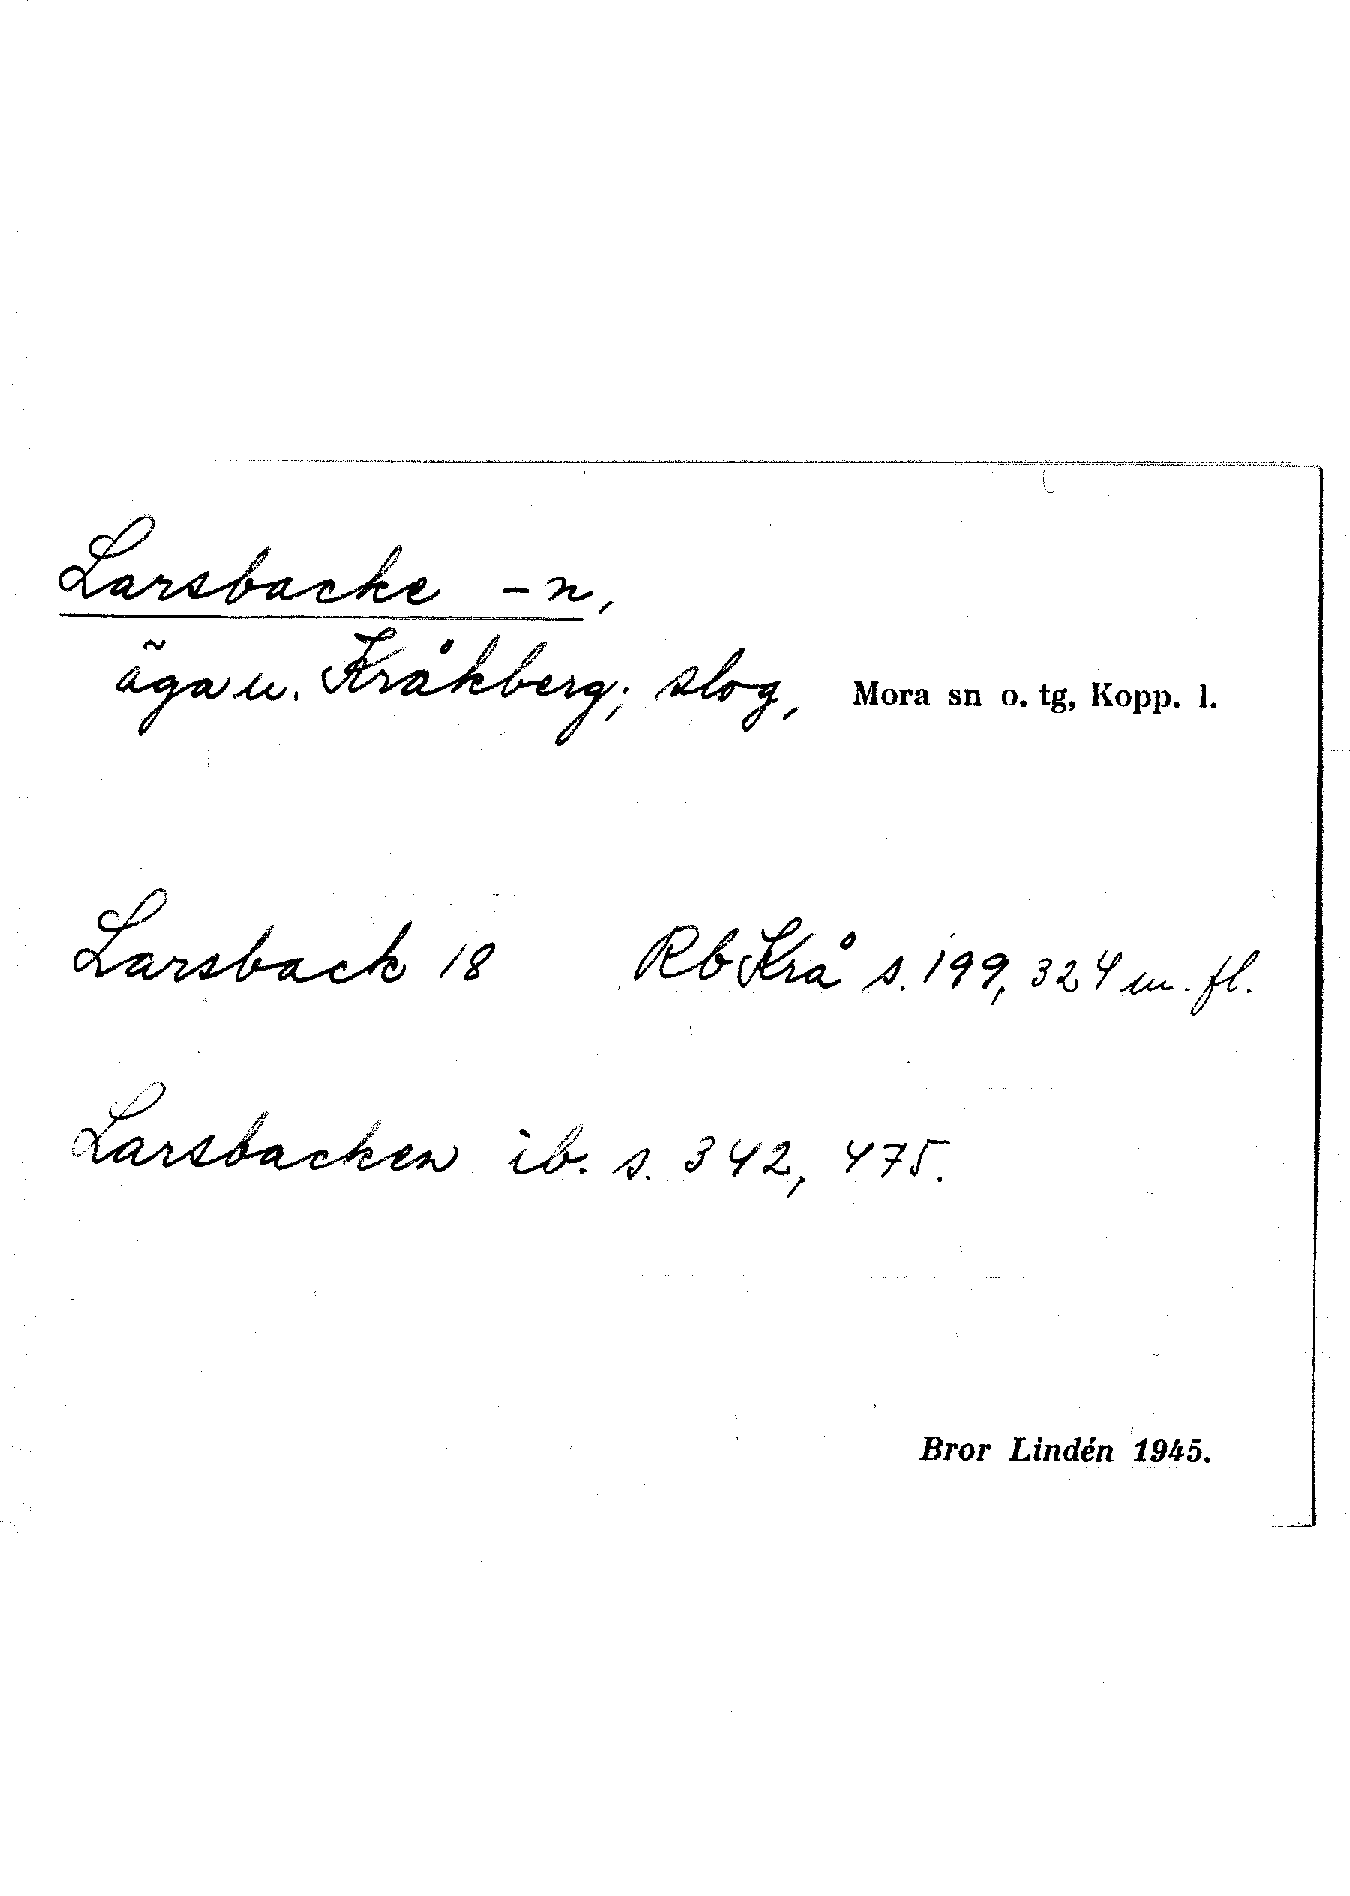 Larsbacke -n,
äga u. Kråkberg; slog, Mora sn o. tg, Kopp. l.
Larsback 18 RbKrå s. 199, 324 m. fl.
Larsbacken ib. s. 342, 475.
Bror Lindén 1945.